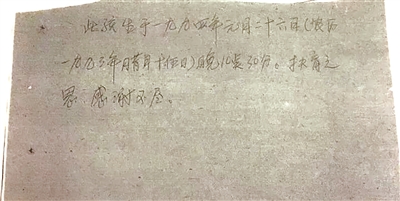 此孩生于一九九四年元月二十六日(农历
一九九三年腊月十五日)晚12点30分。抚育之
恩,感谢不尽。